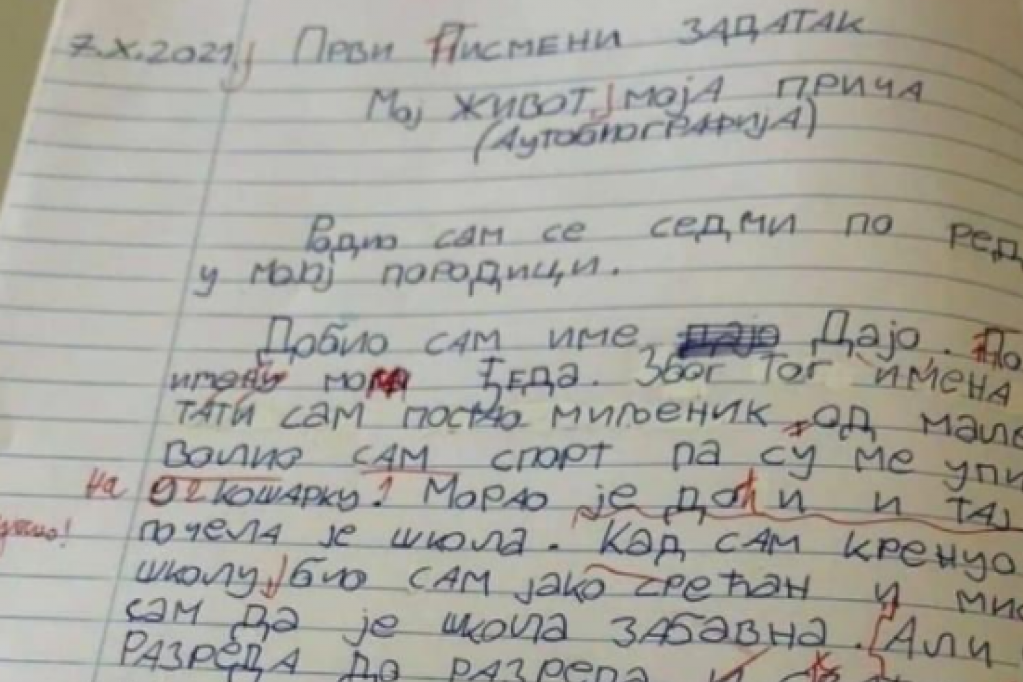 7.X.2021, Први Писмени ЗАДАТАК
Мој ЖИВОТ, МОЈА ПРИЧА
(Аутобиографија)
Родио сам се седми по ред
у мојој породици.
Добио сам име Дајо. По
имену мога ђеда. Због тог имена
ТАТИ сам постао миљеник, од мале
волио САМ спорт па су ме упи
на кошарку. Морао је доћи и ТАЈ
почела је школа. Кад сам кренуо
школу, био САМ јако срећан и мис
сам да је школа ЗАБАВНА. Али
РАЗРЕДА до разреда